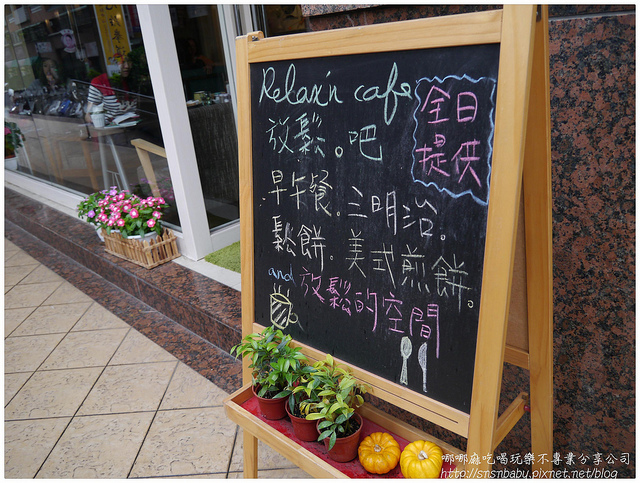 Relax'n cafe
放鬆。吧
全日
提供
早午餐。三明治。
鬆餅。美式煎餅。
and 放鬆的空間
哪哪麻吃喝玩樂不專業分享公司
http://snsnbaby.pixnet.net/blog